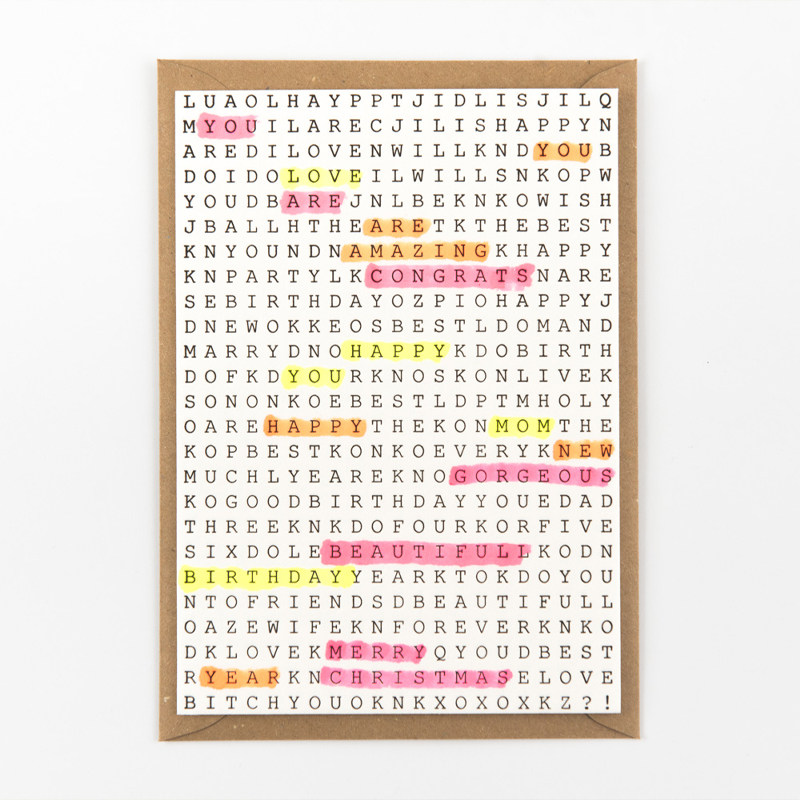 LUAOLHAYPPTJIDLISJILQ
MYOUILARECJILISHAPPYN
AREDILOVENWILLKNDYOUB
DOIDOLOVEILWILLSNKOPW
YOUDBAREJNLBEKNKOWISH
JBALLHTHEARETKTHEBEST
KNYOUNDNAMAZINGKHAPPY
KNPARTYLKCONGRATSNARE
SEBIRTHDAYOZPIOHAPPYJ
DNEWOKKEOSBESTLDOMAND
MARRYDNOHAPPYKDOBIRTH
DOFKDYOURKNOSKONLIVEK
SONONKOEBESTLDPTMHOLY
OAREHAPPYTHEKONMOMTHE
KOPBESTKONKOEVERYKNEW
MUCHLYEAREKNOGORGEOUS
KOGOODBIRTHDAYYOUEDAD
THREEKNKDOFOURKORFIVE
SIXDOLEBEAUTIFULLKODN
BIRTHDAYYEARKTOKDOYOU
NTOFRIENDSDBEAUTIFULL
OAZEWIFEKNFOREVERKNKO
DKLOVEKMERRYQYOUDBEST
RYEARKNCHRISTMASELOVE
BITCHYOUOKNKXOXOXKZ?!